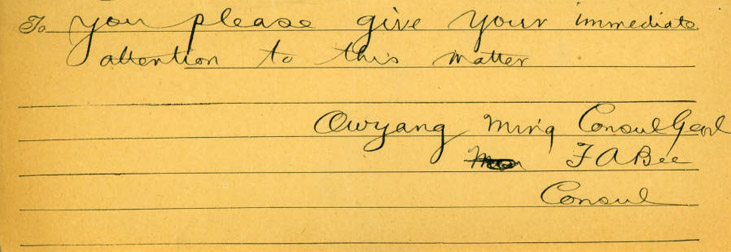 To you please give your immediate
attention to this matter
Owyang Ming Consul Genl
F A Bee
Consul